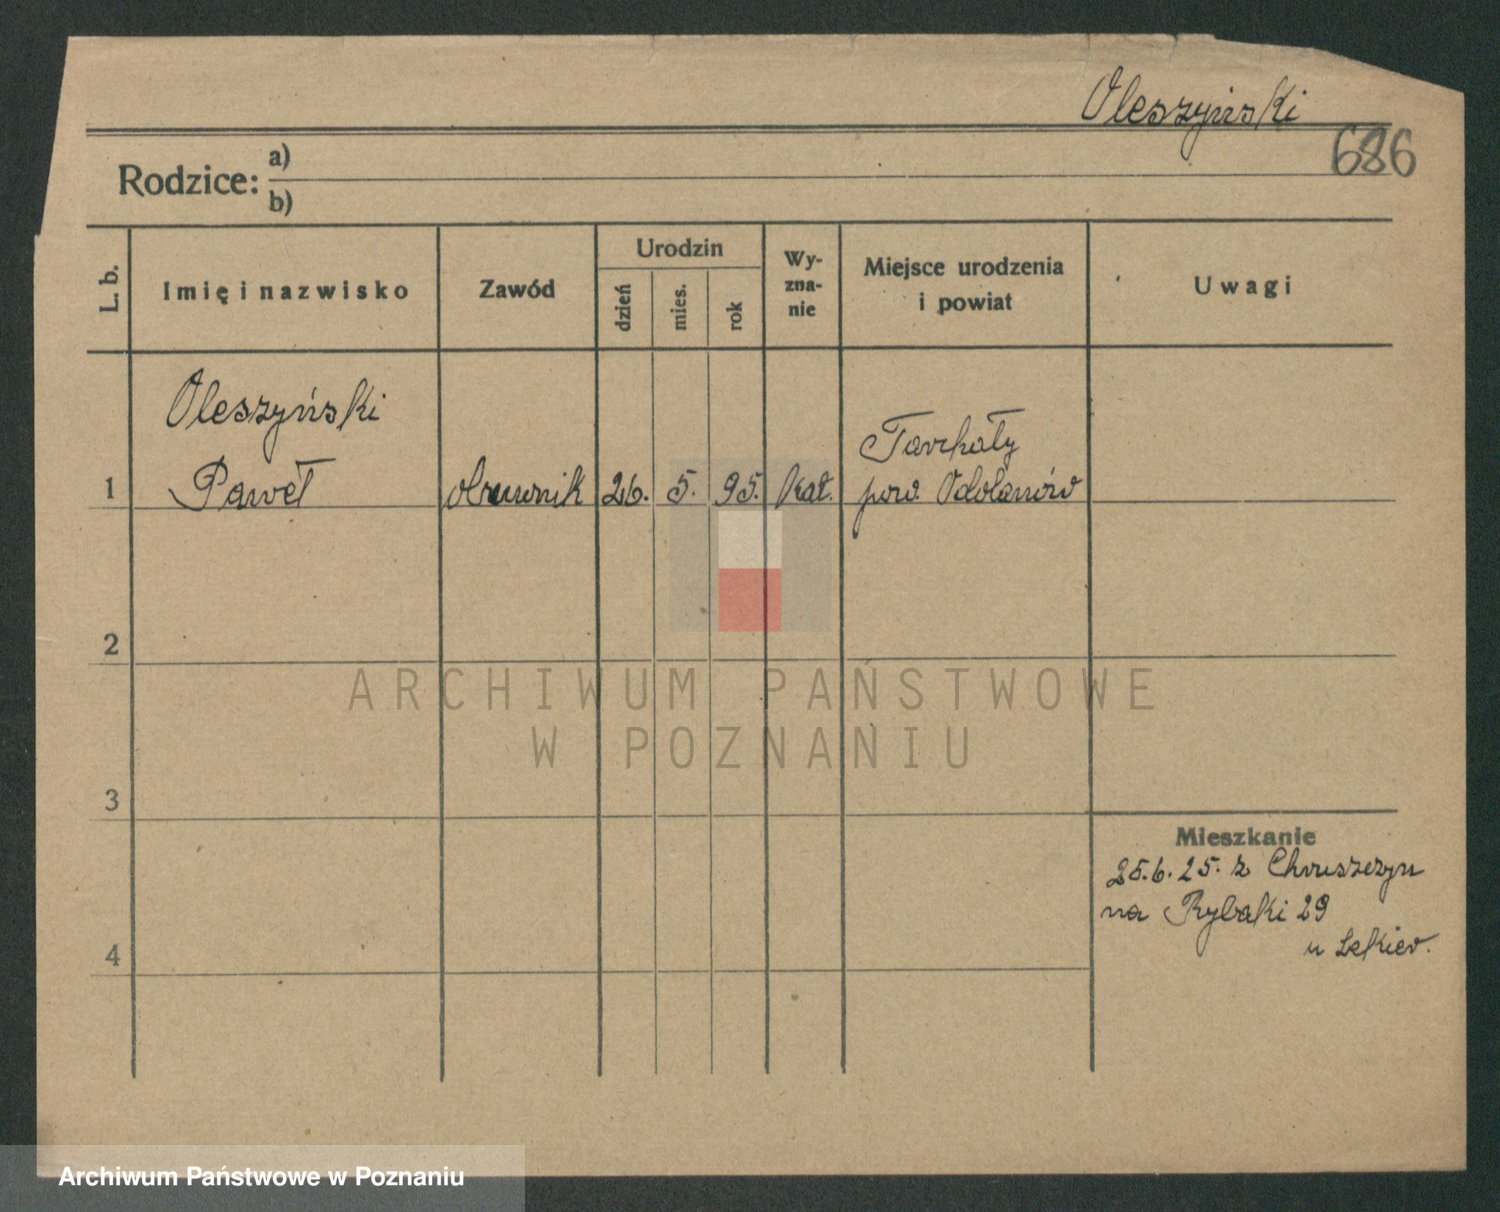 Oleszyński
686
Rodzice:
a)
b)
L. b.
Imię i nazwisko
Zawód
Urodzin
dzień
mies.
rok
Wy-
zna-
nie
Miejsce urodzenia
i powiat
Uwagi
Oleszyński
1 Paweł
26. 5. 95. kat.
Tarchały
pow. Odolanów
2
3
4
Mieszkanie
25.6.25. z Chruszczyn
na Rybaki 29
u
ARCHIWUM PAŃSTWOWE
W POZNANIU
Archiwum Państwowe w Poznaniu